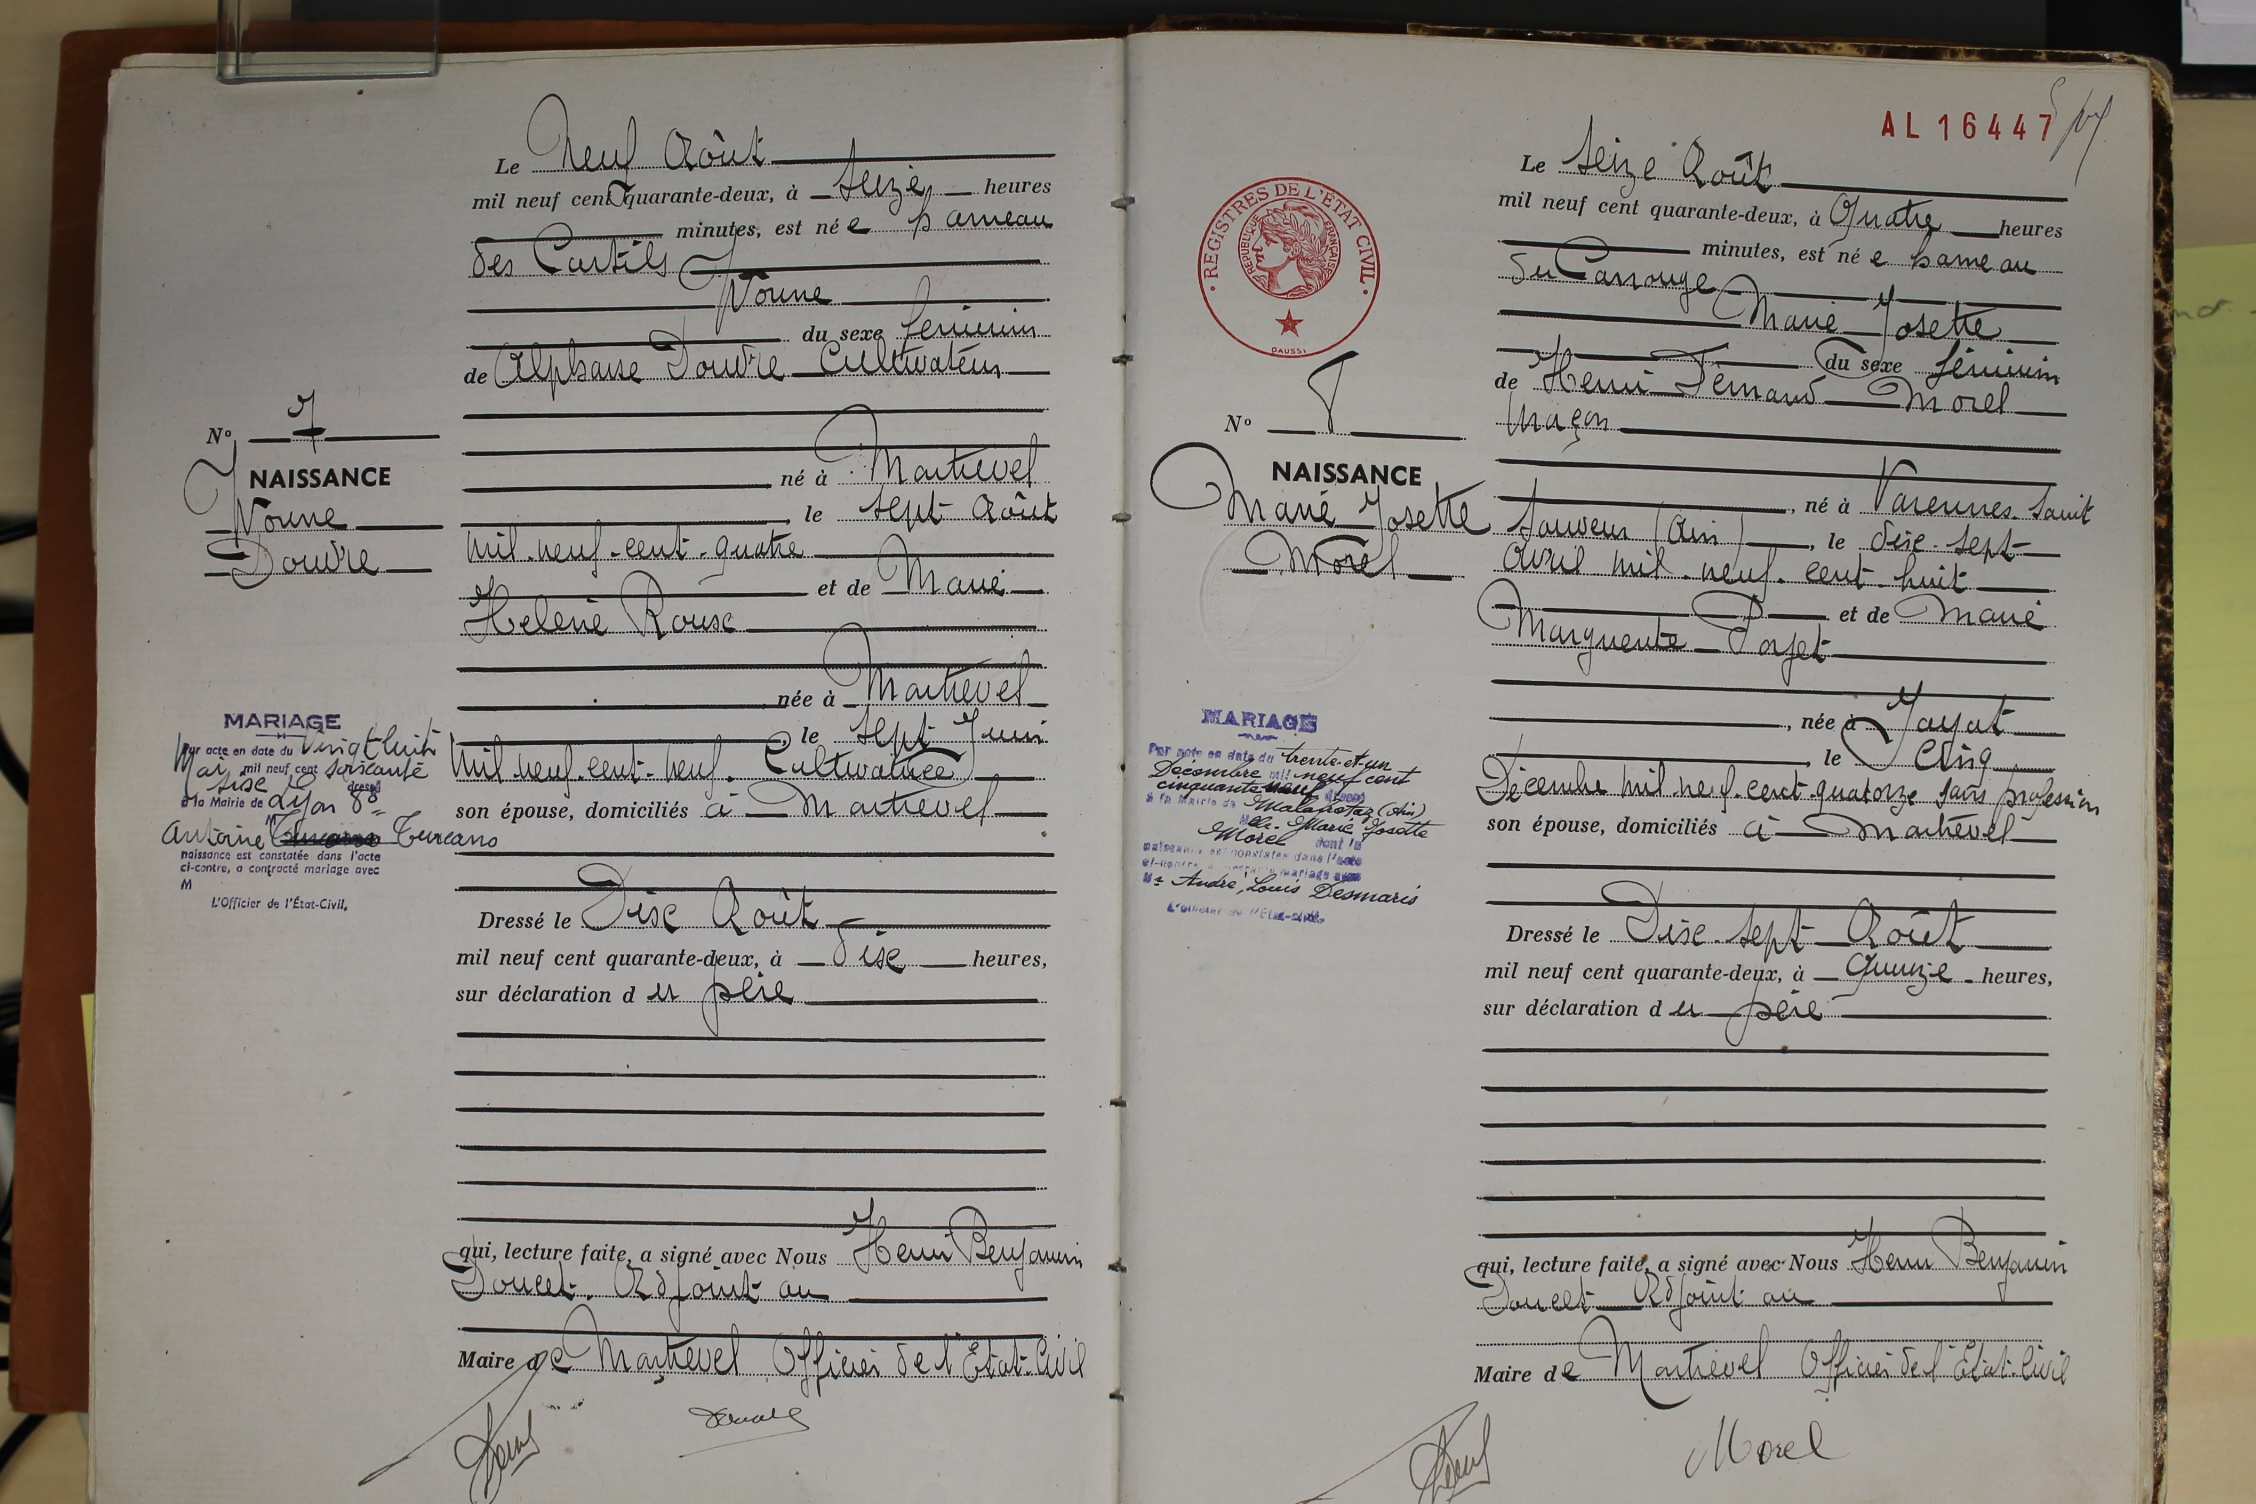 Le Neuf Août
mil neuf cent quarante-deux, à seize heures
minutes, est née hameau
des Curtils
Yvonne
du sexe féminin
de Alphonse Douvre Cultivateur
né à Martrevel
le sept Août
mil-neuf-cent-quatre
et de Marie
Hélène Roux
née à Martrevel
le sept Juin
mil-neuf-cent-neuf. Cultivatrice
son épouse, domiciliés à Martrevel
Dressé le Dix Août
mil neuf cent quarante-deux, à dix heures,
sur déclaration du père
qui, lecture faite, a signé avec Nous Henri Benjamin
Doucet. Adjoint au
Maire de Martrevel Officier de l'État-Civil
N° 7
NAISSANCE
Yvonne
Douvre
MARIAGE
Par acte en date du Vingt huit
Mai mil neuf cent soixante
six dressé
à la Mairie de Lyon 8e
M
Antoine Turcano
naissance est constatée dans l'acte
ci-contre, a contracté mariage avec
M
L'Officier de l'État-Civil,
AL 16447
REGISTRES DE L'ÉTAT CIVIL
RÉPUBLIQUE FRANÇAISE
DAUSSI
Le seize Août
mil neuf cent quarante-deux, à Quatre heures
minutes, est née hameau
du Carrouge
Marie Josette
du sexe féminin
de Henri Fernand Morel
Maçon
né à Varennes-Saint
Sauveur (Ain), le dix-sept
Avril mil-neuf-cent-huit
et de Marie
Marguerite Porjet
née à Jayat
le Cinq
Décembre mil-neuf-cent-quatorze sans profession
son épouse, domiciliés à Martrevel
Dressé le Dix-sept Août
mil neuf cent quarante-deux, à Quinze heures,
sur déclaration du père
qui, lecture faite, a signé avec Nous Henri Benjamin
Doucet Adjoint au
Maire de Martrevel Officier de l'État-Civil
Morel
N° 8
NAISSANCE
Marie Josette
Morel
MARIAGE
Par acte en date du trente-et-un
Décembre mil neuf cent
cinquante neuf dressé
à la Mairie de Malafretaz (Ain)
Melle Marie Josette
Morel dont la
naissance est constatée dans l'acte
ci-contre a contracté mariage avec
Mr André, Louis Desmaris
L'Officier de l'État-Civil,